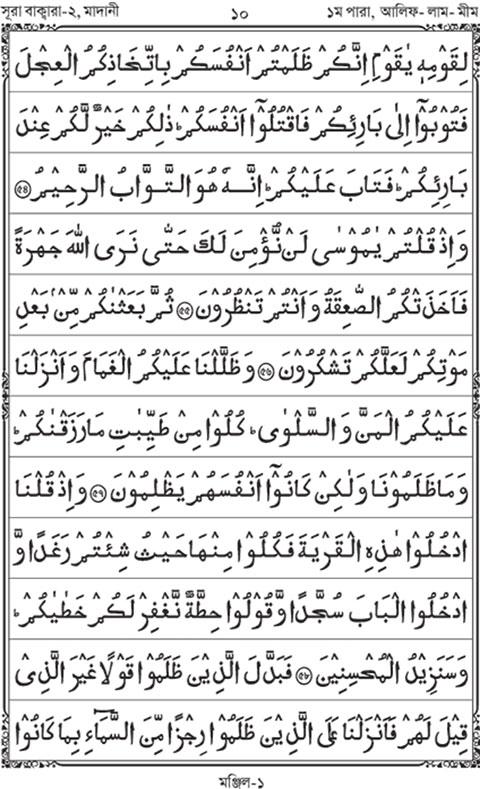 সূরা বাক্বারা-২, মাদানী ১০ ১ম পারা, আলিফ- লাম- মীম
لِقَوْمِهٖ يٰقَوْمِ اِنَّكُمْ ظَلَمْتُمْ اَنْفُسَكُمْ بِاتِّخَاذِكُمُ الْعِجْلَ
فَتُوْبُوْٓا اِلٰى بَارِئِكُمْ فَاقْتُلُوْٓا اَنْفُسَكُمْ ؕ ذٰلِكُمْ خَيْرٌ لَّكُمْ عِنْدَ
بَارِئِكُمْ ؕ فَتَابَ عَلَيْكُمْ ؕ اِنَّهٗ هُوَ التَّوَّابُ الرَّحِيْمُ ﴿۵۴﴾
وَاِذْ قُلْتُمْ يٰمُوْسٰى لَنْ نُّؤْمِنَ لَكَ حَتّٰى نَرَى اللّٰهَ جَهْرَةً
فَاَخَذَتْكُمُ الصّٰعِقَةُ وَاَنْتُمْ تَنْظُرُوْنَ ﴿۵۵﴾ ثُمَّ بَعَثْنٰكُمْ مِّنْۢ بَعْدِ
مَوْتِكُمْ لَعَلَّكُمْ تَشْكُرُوْنَ ﴿۵۶﴾ وَظَلَّلْنَا عَلَيْكُمُ الْغَمَامَ وَاَنْزَلْنَا
عَلَيْكُمُ الْمَنَّ وَالسَّلْوٰى ؕ كُلُوْا مِنْ طَيِّبٰتِ مَا رَزَقْنٰكُمْ ؕ
وَمَا ظَلَمُوْنَا وَلٰكِنْ كَانُوْٓا اَنْفُسَهُمْ يَظْلِمُوْنَ ﴿۵۷﴾ وَاِذْ قُلْنَا
ادْخُلُوْا هٰذِهِ الْقَرْيَةَ فَكُلُوْا مِنْهَا حَيْثُ شِئْتُمْ رَغَدًا وَّ
ادْخُلُوا الْبَابَ سُجَّدًا وَّقُوْلُوْا حِطَّةٌ نَّغْفِرْ لَكُمْ خَطٰيٰكُمْ ؕ
وَسَنَزِيْدُ الْمُحْسِنِيْنَ ﴿۵۸﴾ فَبَدَّلَ الَّذِيْنَ ظَلَمُوْا قَوْلًا غَيْرَ الَّذِيْ
قِيْلَ لَهُمْ فَاَنْزَلْنَا عَلَى الَّذِيْنَ ظَلَمُوْا رِجْزًا مِّنَ السَّمَآءِ بِمَا كَانُوْا
মঞ্জিল-১